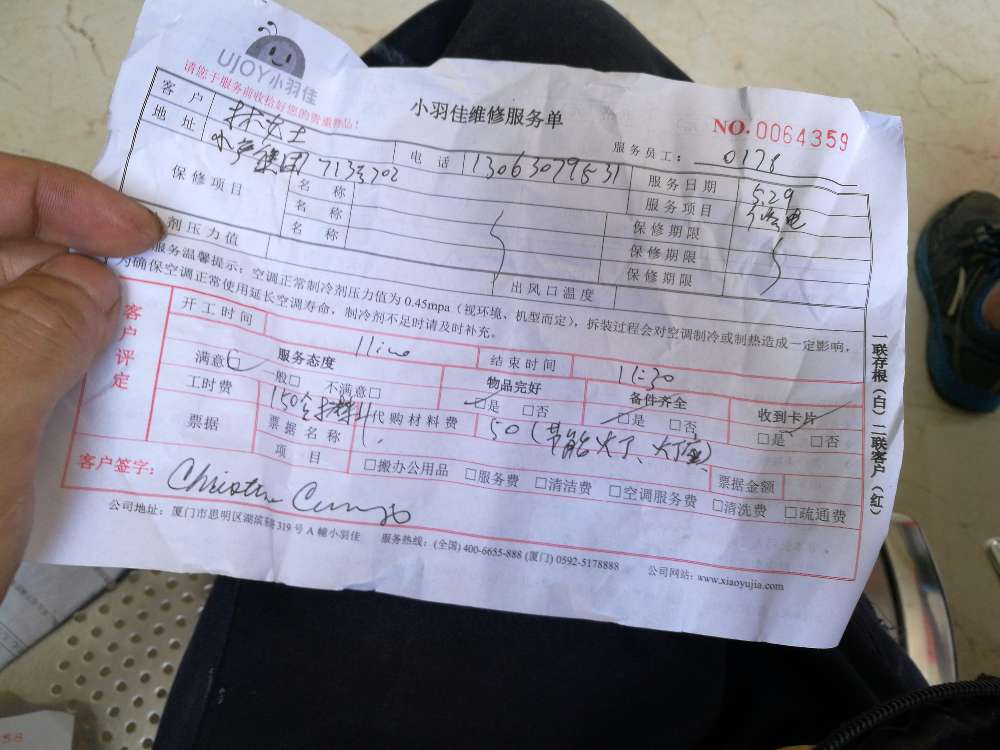 UJOY小羽佳
请您于服务前收拾好您的贵重物品!
小羽佳维修服务单
NO.0064359
服务员工: 0178
客户 林女士 电话 13063079531 服务日期 5.29
地址 水产集团713号702 服务项目
保修项目 名称 保修期限
名称 保修期限
名称 保修期限
剂压力值 出风口温度
服务温馨提示:空调正常制冷剂压力值为 0.45mpa(视环境、机型而定),拆装过程会对空调制冷或制热造成一定影响,
为确保空调正常使用延长空调寿命,制冷剂不足时请及时补充。
客户评定
开工时间 结束时间 11:30
服务态度 物品完好 备件齐全 收到卡片
满意□ 一般□ 不满意□ □是 □否 □是 □否 □是 □否
工时费 150含材料 代购材料费 50(节能火了、火了
票据 票据名称 票据金额
项目 □搬办公用品 □服务费 □清洁费 □空调服务费 □清洗费 □疏通费
客户签字:
公司地址:厦门市思明区湖滨 319号A幢小羽佳 服务热线:(全国) 400-6655-888 (厦门) 0592-5178888 公司网站:www.xiaoyujia.com
一联存根(白)二联客户(红)